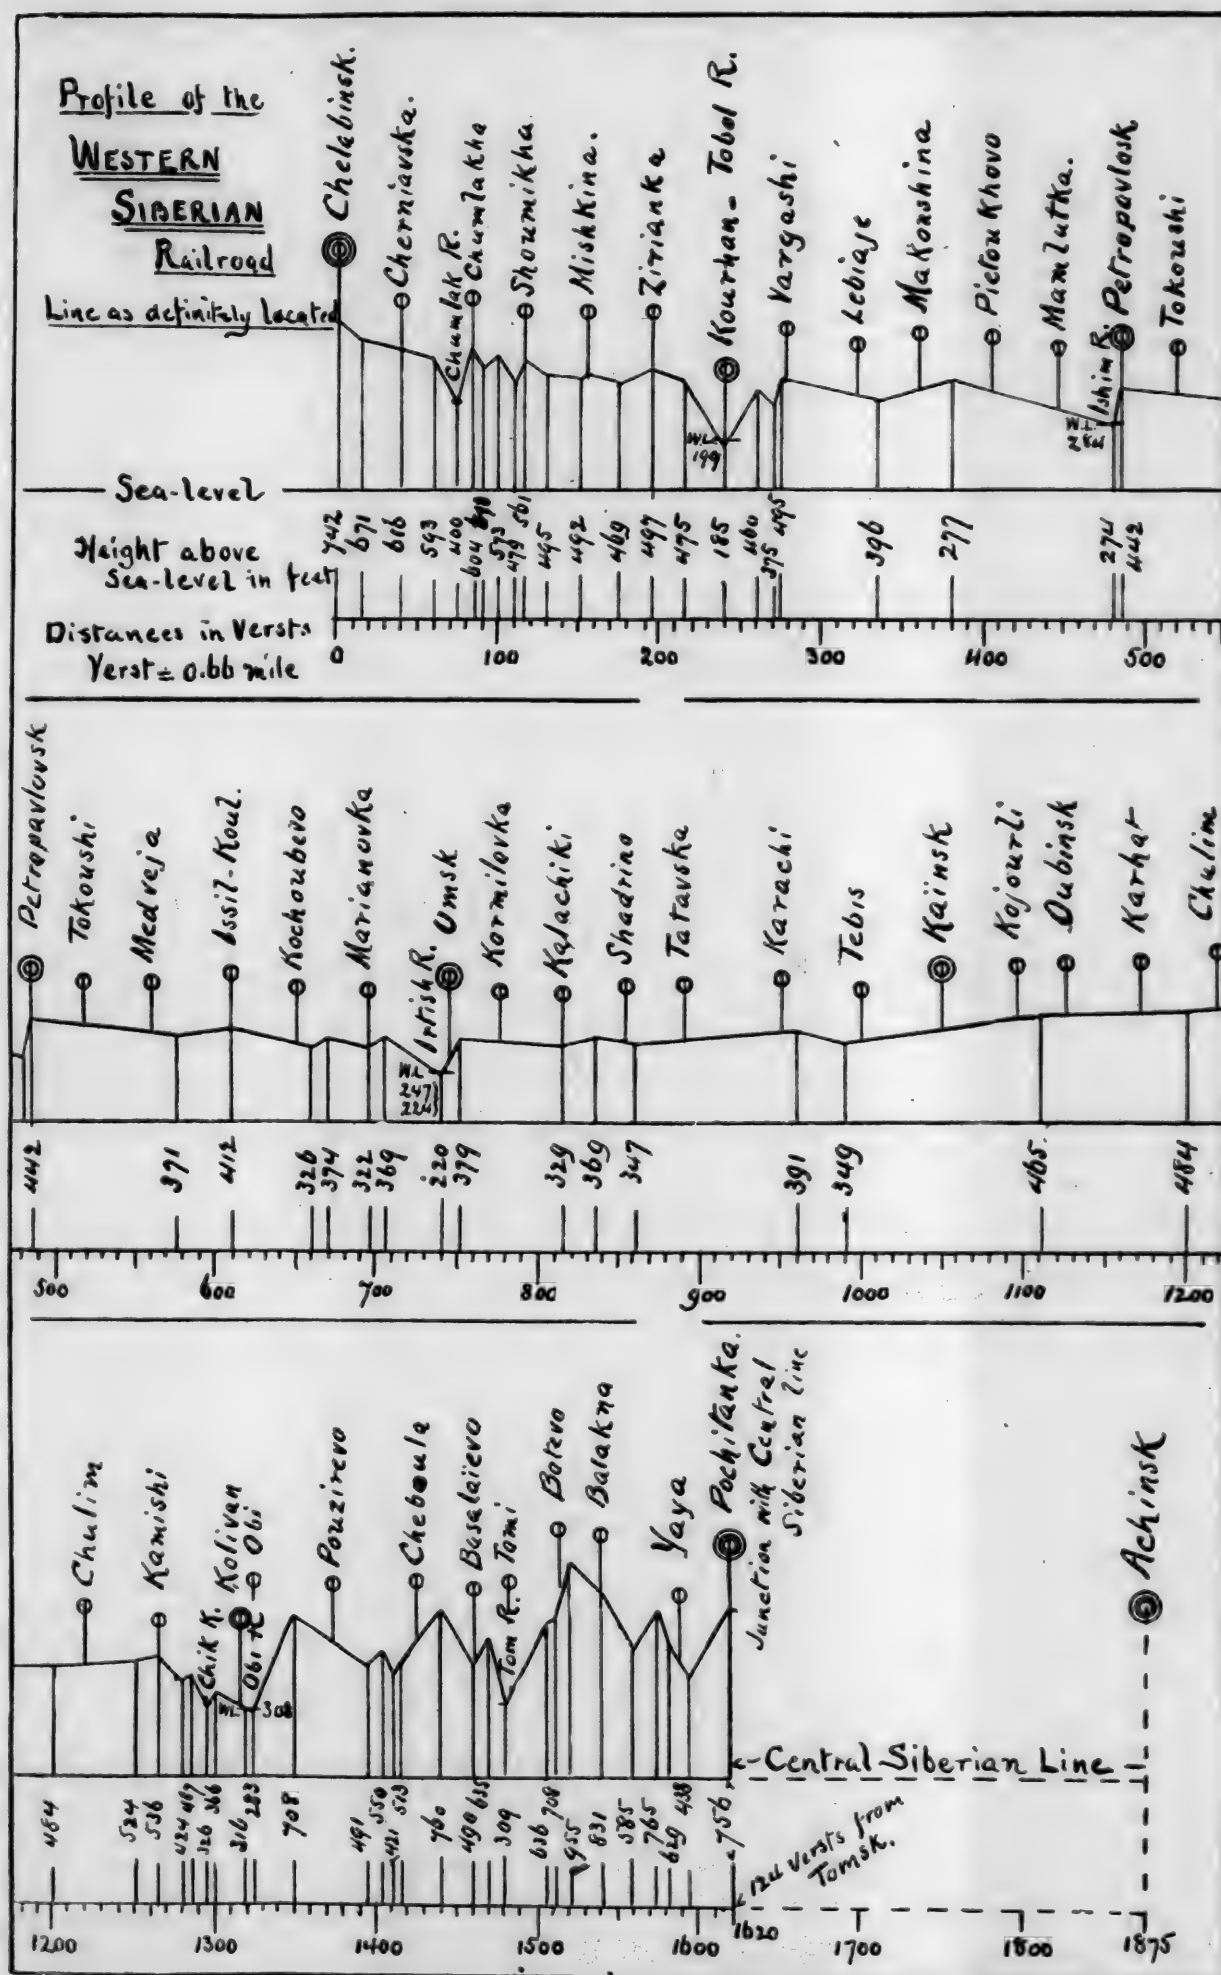 Profile of the
WESTERN
SIBERIAN
Railroad
Line as definitely located
Chelabinsk.
Cherniavska.
Chumlak R.
Chumlakha
Shoumikha.
Mishkina.
Zirianka
Kourhan - Tobol R.
Vargashi
Lebiaje
Makonshina
Pietoukhovo
Mamlutka.
Ishim R.
Petropavlosk
Tokoushi
W.L. 199
W.L. 284
Sea-level
Height above
Sea-level in feet
742 671 616 593 400 604 573 479 561 495 492 469 497 475 185 460 375 495 396 277 274 442
Distances in Versts
Verst = 0.66 mile
0 100 200 300 400 500
Petropavlovsk
Tokoushi
Medveja
Issil-Koul.
Kochoubevo
Marianovka
Irtish R.
Omsk
Kormilovka
Kalachiki
Shadrino
Tatavska
Karachi
Tebis
Kaïnsk
Kojourli
Dubinsk
Karhat
Chulim
W.L.
247
224
442 371 412 326 374 322 369 220 379 329 369 347 391 349 465. 484
500 600 700 800 900 1000 1100 1200
Chulim
Kamishi
Chik R.
Kolivan
Obi R - Obi
Pouzirevo
Cheboula
Basalaïevo
Tom R. - Tomi
Botevo
Balakna
Yaya
Pochitanka.
Junction with Central
Siberian Line
Achinsk
W.L. 308
Central Siberian Line
484 524 536 424 467 326 366 316 283 708 491 550 421 513 760 490 635 309 636 708 955 831 585 765 629 438 756
124 versts from
Tomsk.
1200 1300 1400 1500 1600 1620 1700 1800 1875